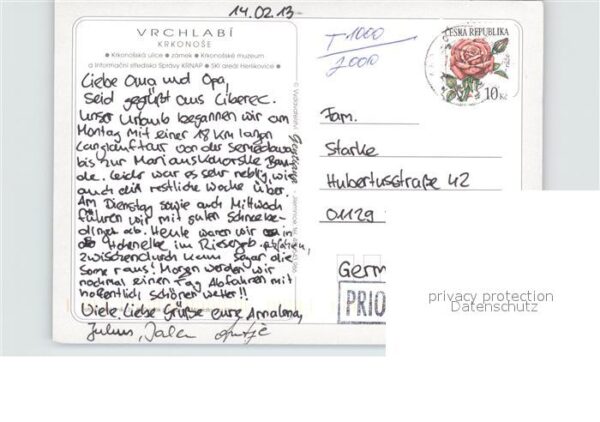 14.02.13
VRCHLABÍ
KRKONOŠE
• Krkonošská ulice • zámek • Krkonošské muzeum
a Informační středisko Správy KRNAP • SKI areál Herlíkovice •
Liebe Oma und Opa,
Seid gegrüßt aus Liberec.
Unser Urlaub begannen wir am
Montag mit einer 18 km langen
Langlauftour von der
bis zur
de. Leider war es sehr neblig, wie
auch die restliche Woche über.
Am Dienstag sowie auch Mittwoch
führen wir mit guten Schneebe-
dingen ab. Heute waren wir in
Hohenelbe im Riesengeb. abfahren,
zwischendurch kam sogar die
Sonne raus! Morgen werden wir
nochmal einen Tag Abfahren mit
hoffentlich schönen Wetter!!
Viele Liebe Grüße eure Annalena,
Julius,
T 1000
ČESKÁ REPUBLIKA
10 Kč
Fam.
Starke
Hubertusstraße 42
01129
Germ
PRIO
privacy protection
Datenschutz